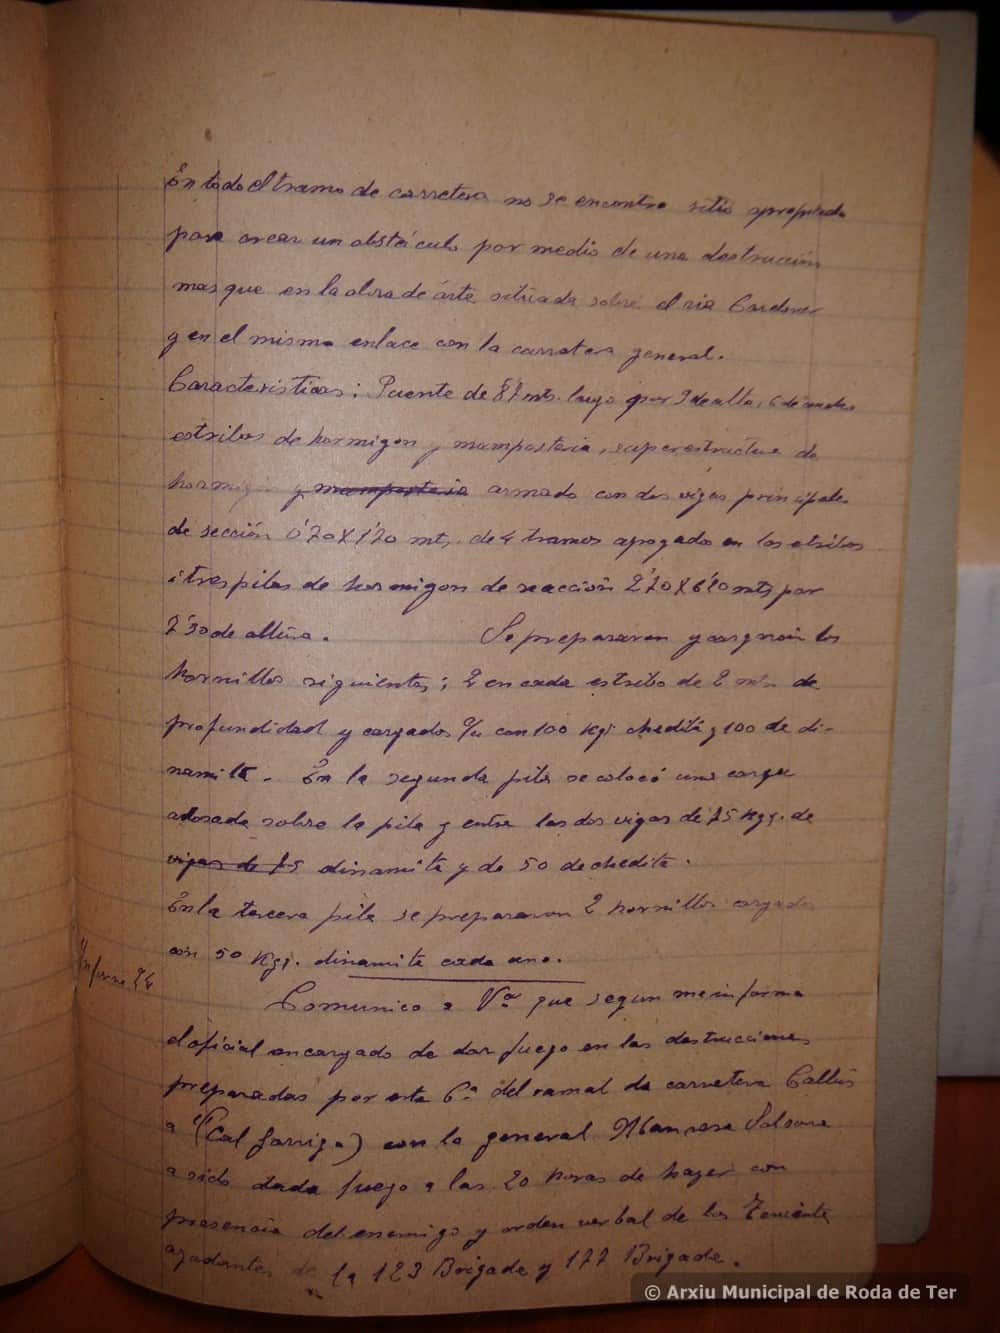 En todo el tramo de carretera no se encontro sitio apropiado
para crear un obstáculo por medio de una destrucción
mas que en la obra de árte situada sobre el rio Cardoner
y en el mismo enlace con la carretera general.
Caracteristicas; Puente de 87 mts. largo por 9 de alto, 6 de ancho
estribos de hormigon y mamposteria, superestructura de
hormigon y mamposteria armado con dos vigas principales
de sección 0'70X1'20 mts. de 4 tramos apogado en los estribos
i tres pilas de hormigon de seacción 2'70X6'10 mts por
7'30 de altura. Se prepararon y cargaron los
hornillos siguientes; 2 en cada estribo de 2 mts de
profundidad y cargados c/u con 100 Kgs chedita y 100 de di-
namita. En la segunda pila se colocó una carga
adosada sobre la pila y entre las dos vigas de 75 Kgs. de
vigas de 75 dinamita y de 50 de chedita.
En la tercera pila se prepararon 2 hornillos cargados
con 50 Kgs. dinamita cada uno.
Informe 24
Comunico a Vd que segun me informa
el oficial encargado de dar fuego en las destrucciones
preparadas por esta Cª del ramal de carretera Callús
a "(Cal Garriga) con la general Manresa Solsona
a sido dada fuego a las 20 horas de hayer con
presencia del enemigo y orden verbal de los Teniente
ayudantes de la 123 Brigada y 177 Brigada.
© Arxiu Municipal de Roda de Ter